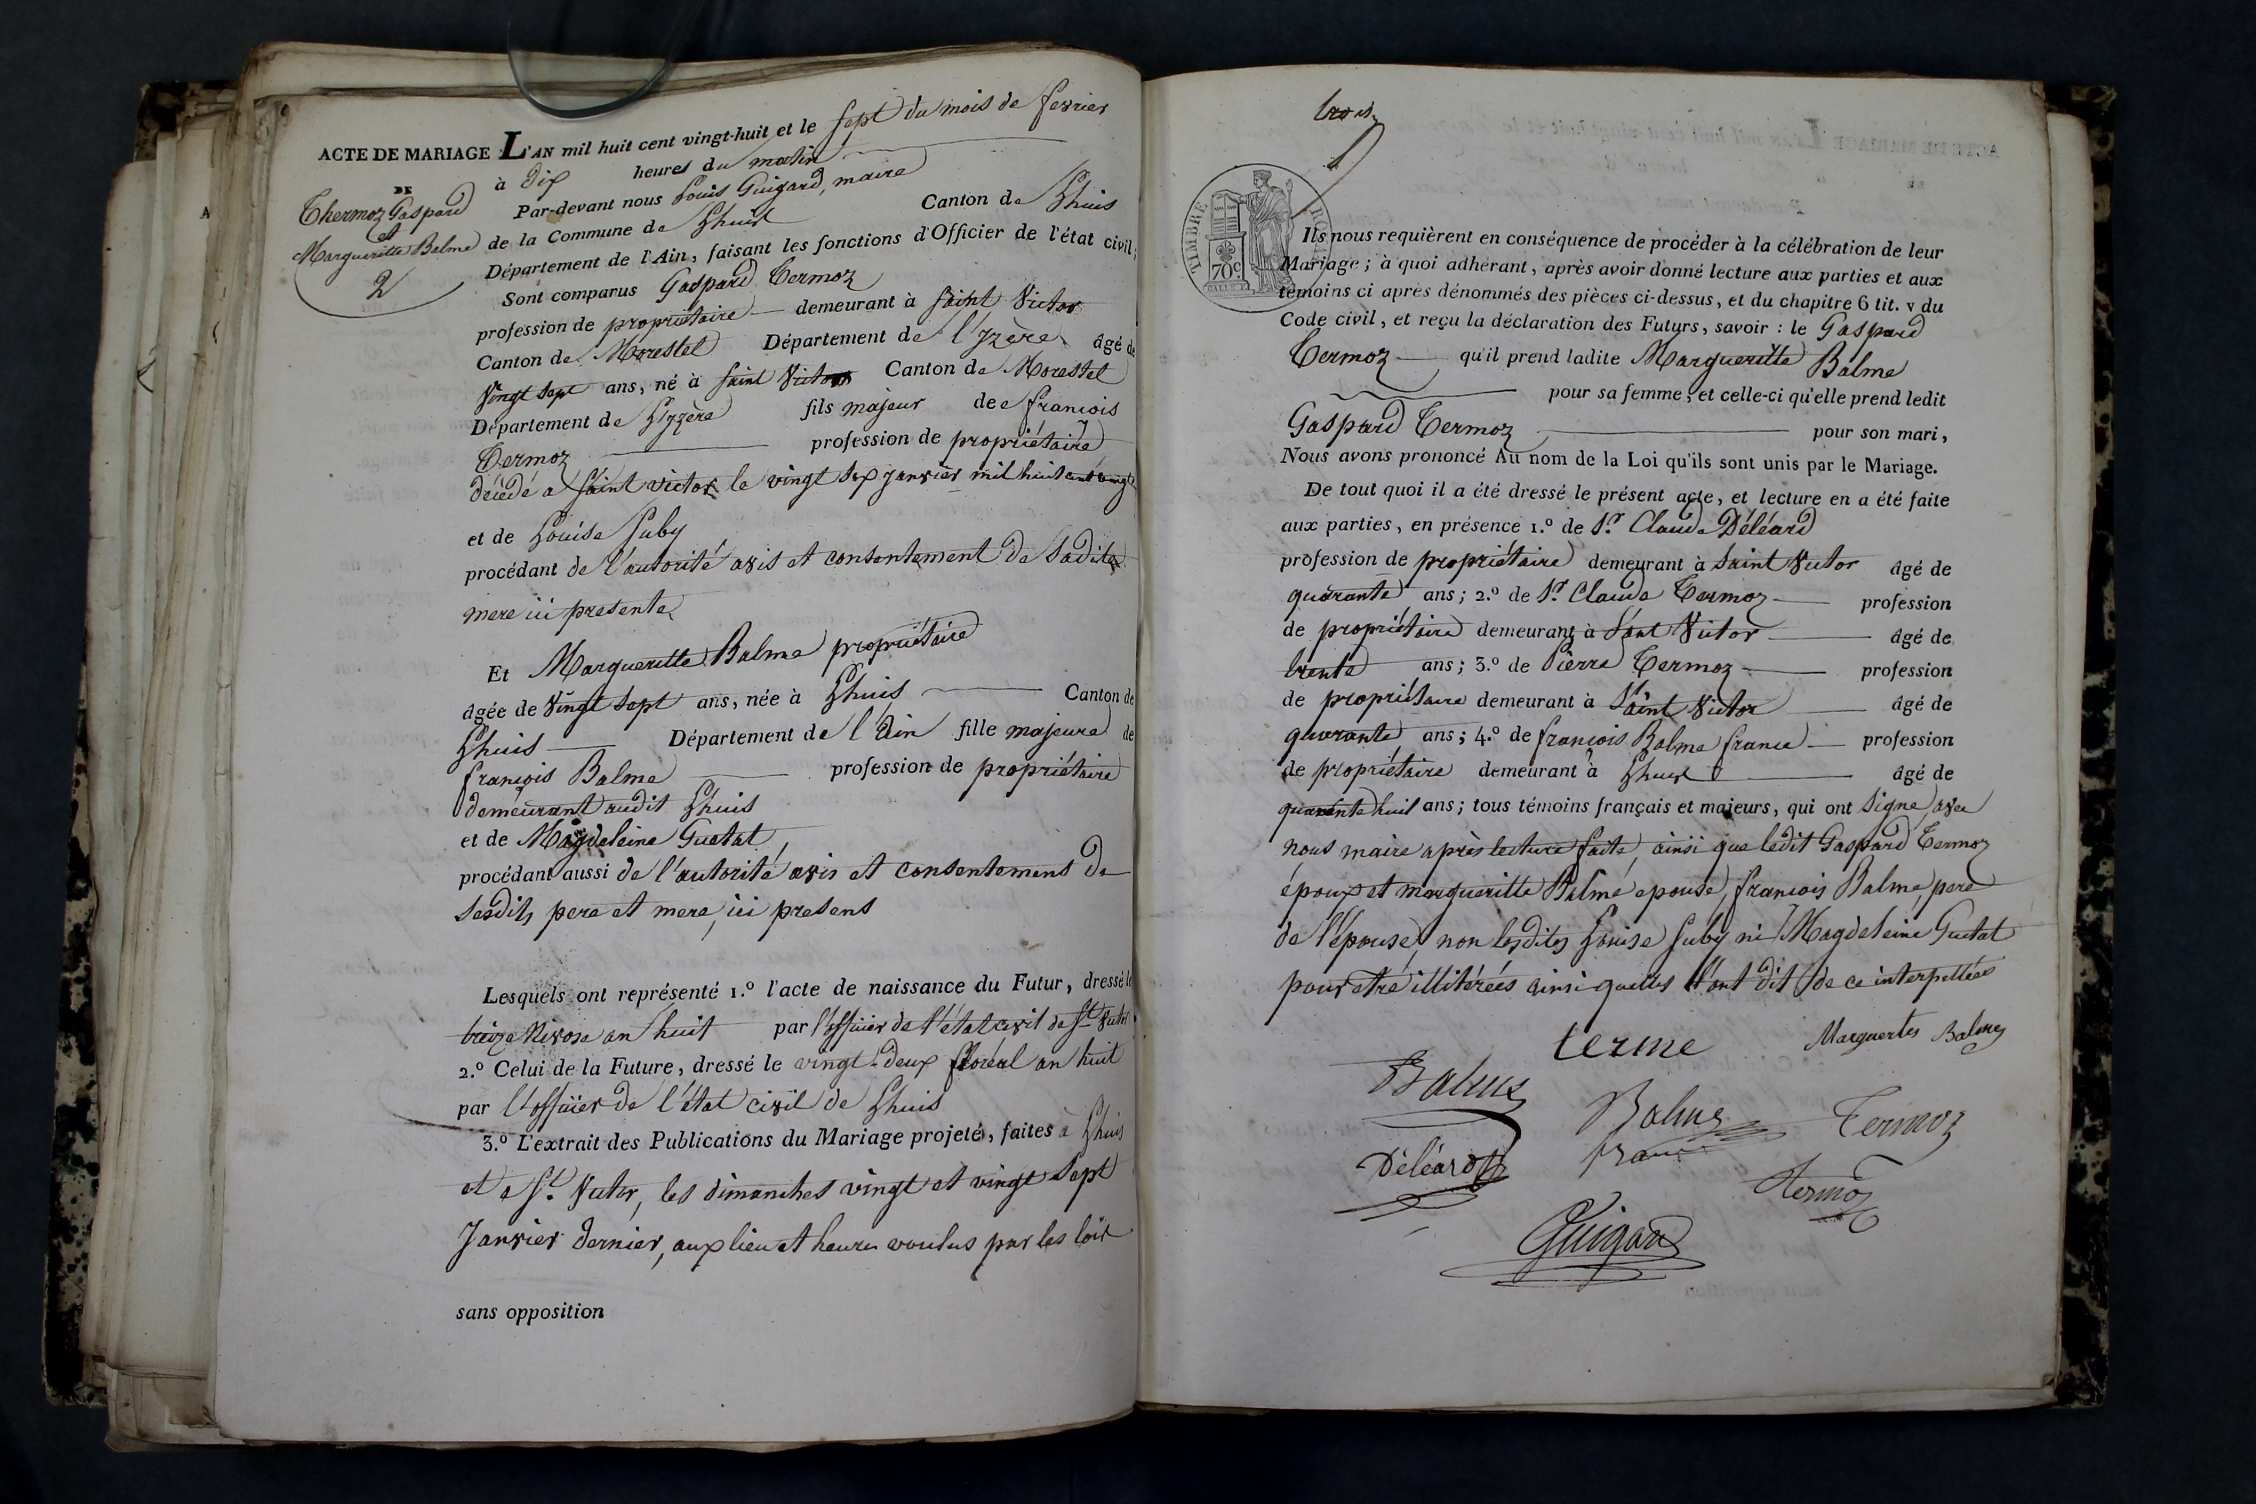 ACTE DE MARIAGE L'AN mil huit cent vingt-huit et le sept du mois de fevrier
DE
à dix heures du matin
Thermoz Gaspard
et
Margueritte Balme
2
Par-devant nous Louis Guigard, maire
de la Commune de Lhuis Canton de Lhuis
Département de l'Ain, faisant les fonctions d'Officier de l'état civil;
Sont comparus Gaspard Termoz
profession de propriétaire demeurant à saint Victor
Canton de Morestel Département de l'Yzère âgé de
Vingt sept ans, né à saint Victor Canton de Morestel
Département de L'yzère fils majeur de francois
Termoz profession de propriétaire
décédé à saint victor le vingt six janvier mil huit cent vingt
et de Louise Suby
procédant de l'autorité avis et consentement de sadite
mere ici presente
Et Margueritte Balme propriétaire
âgée de Vingt sept ans, née à Lhuis Canton de
Lhuis Département de l'Ain fille majeure de
françois Balme profession de propriétaire
demeurant audit Lhuis
et de Magdeleine Guetat
procédant aussi de l'autorité avis et consentement de
sesdits pere et mere, ici presens
Lesquels ont représenté 1.º l'acte de naissance du Futur, dressé le
treize Nivose an huit par l'officier de l'état civil de St Victor
2.º Celui de la Future, dressé le vingt-deux floréal an huit
par l'officier de l'état civil de Lhuis
3.º L'extrait des Publications du Mariage projeté, faites à Lhuis
et à St. Victor, les dimanches vingt et vingt sept
Janvier dernier, aux lieu et heures voulus par les lois
sans opposition
trois
TIMBRE ROYAL
70c
Ils nous requièrent en conséquence de procéder à la célébration de leur
Mariage; à quoi adhérant, après avoir donné lecture aux parties et aux
témoins ci après dénommés des pièces ci-dessus, et du chapitre 6 tit. v du
Code civil, et reçu la déclaration des Futurs, savoir : le Gaspard
Termoz qu'il prend ladite Margueritte Balme
pour sa femme, et celle-ci qu'elle prend ledit
Gaspard Termoz pour son mari,
Nous avons prononcé Au nom de la Loi qu'ils sont unis par le Mariage.
De tout quoi il a été dressé le présent acte, et lecture en a été faite
aux parties, en présence 1.º de Sr. Claude Déléard
profession de propriétaire demeurant à saint Victor âgé de
quarante ans; 2.º de Sr. Claude Termoz profession
de propriétaire demeurant à saint Victor âgé de
trente ans; 3.º de Pierre Termoz profession
de propriétaire demeurant à saint Victor âgé de
quarante ans; 4.º de françois Balme france profession
de propriétaire demeurant à Lhuis âgé de
quarante huit ans; tous témoins français et majeurs, qui ont signé avec
nous maire après lecture faite, ainsi que ledit Gaspard Termoz
époux et margueritte Balme epouse, francois Balme pere
de l'épouse, non lesdites Louise Suby ni Magdeleine Guetat
pour etre illitérées ainsi quelles l'ont dit de ce interpellées
terme Marguerites Balmes
Balme
Balme
franc
Termoz
Déléard
Termoz
Guigard